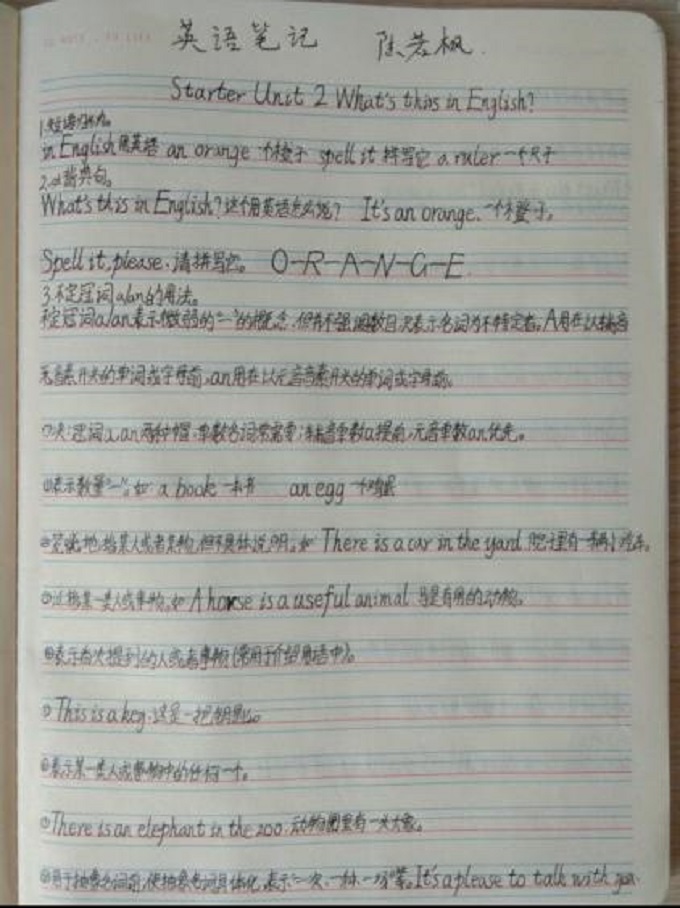 英语笔记 陈若枫.
Starter Unit 2 What's this in English?
1.短语归纳。
in English用英语 an orange 一个橙子 spell it 拼写它 a ruler 一个尺子
2.经典句。
What's this in English?这个用英语怎么说? It's an orange.一个橙子。
Spell it,please.请拼写它。 O-R-A-N-G-E
3.不定冠词a/an的用法。
不定冠词a/an表示微弱的"一"的概念,但并不强调数目,只表示名词为不特定者。A用在以辅音
元音素开头的单词或字母前,an用在以元音音素开头的单词或字母前。
冠词a,an两种帽,单数名词常需要;辅音单数a提前,元音单数an优先。
①表示数量"一"。如: a book 一本书 an egg 一个鸡蛋
②笼统地指某人或者某物,但不具体说明。如 There is a car in the yard 院里有一辆小汽车。
③泛指某一类人或事物,如 A horse is a useful animal 马是有用的动物。
④表示首次提到的人或者事物(常用于介绍用语中)。
This is a key.这是一把钥匙。
表示某一类人或事物中的任何一个。
There is an elephant in the zoo.动物园里有一头大象。
用于抽象名词前,使抽象名词具体化,表示"一次、一种、一场"等。It's a please to talk with you.